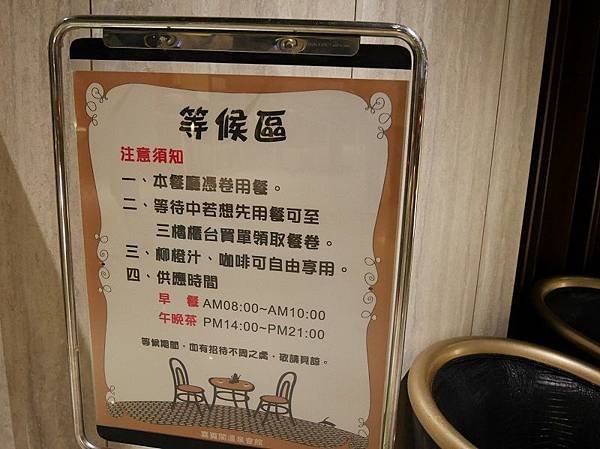 等候區
注意須知
一、本餐廳憑卷用餐。
二、等待中若想先用餐可至
三樓櫃台買單領取餐卷。
三、柳橙汁、咖啡可自由享用。
四、供應時間
早 餐 AM08:00~AM10:00
午晚茶 PM14:00~PM21:00
等候期間，如有招待不周之處，敬請見諒。
溫泉會館